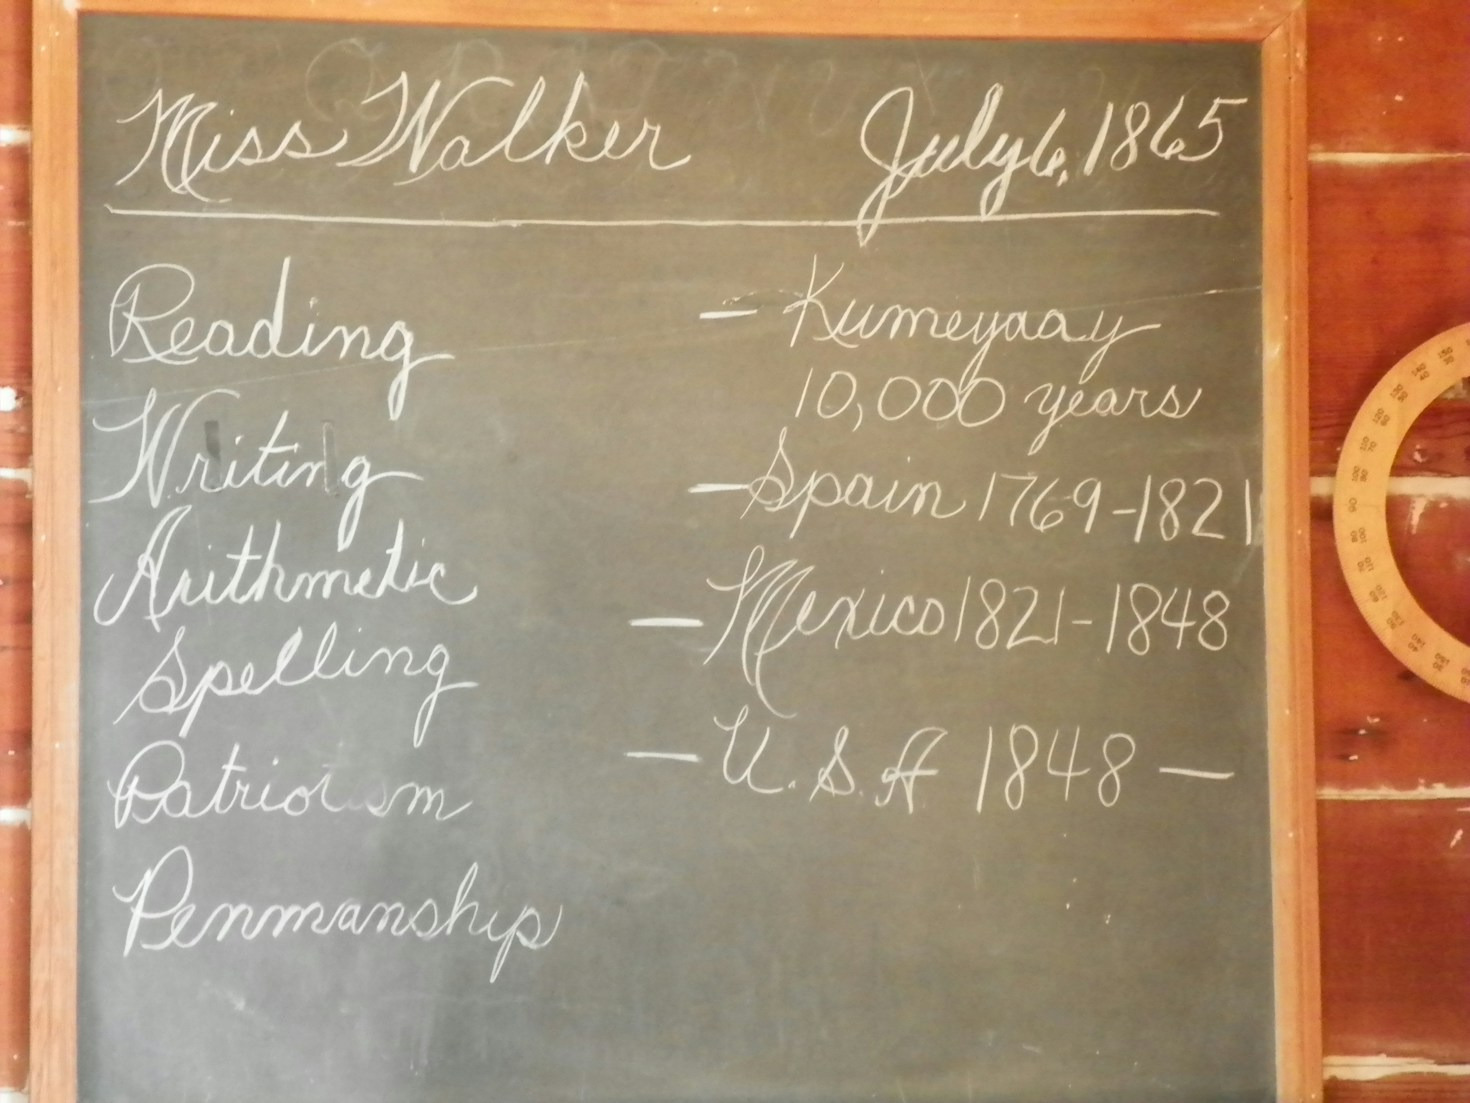 Miss Walker July 6, 1865
Reading
Writing
Arithmetic
Spelling
Patriotism
Penmanship
- Kumeyaay
10,000 years
- Spain 1769-1821
- Mexico 1821-1848
- U.S.A 1848-